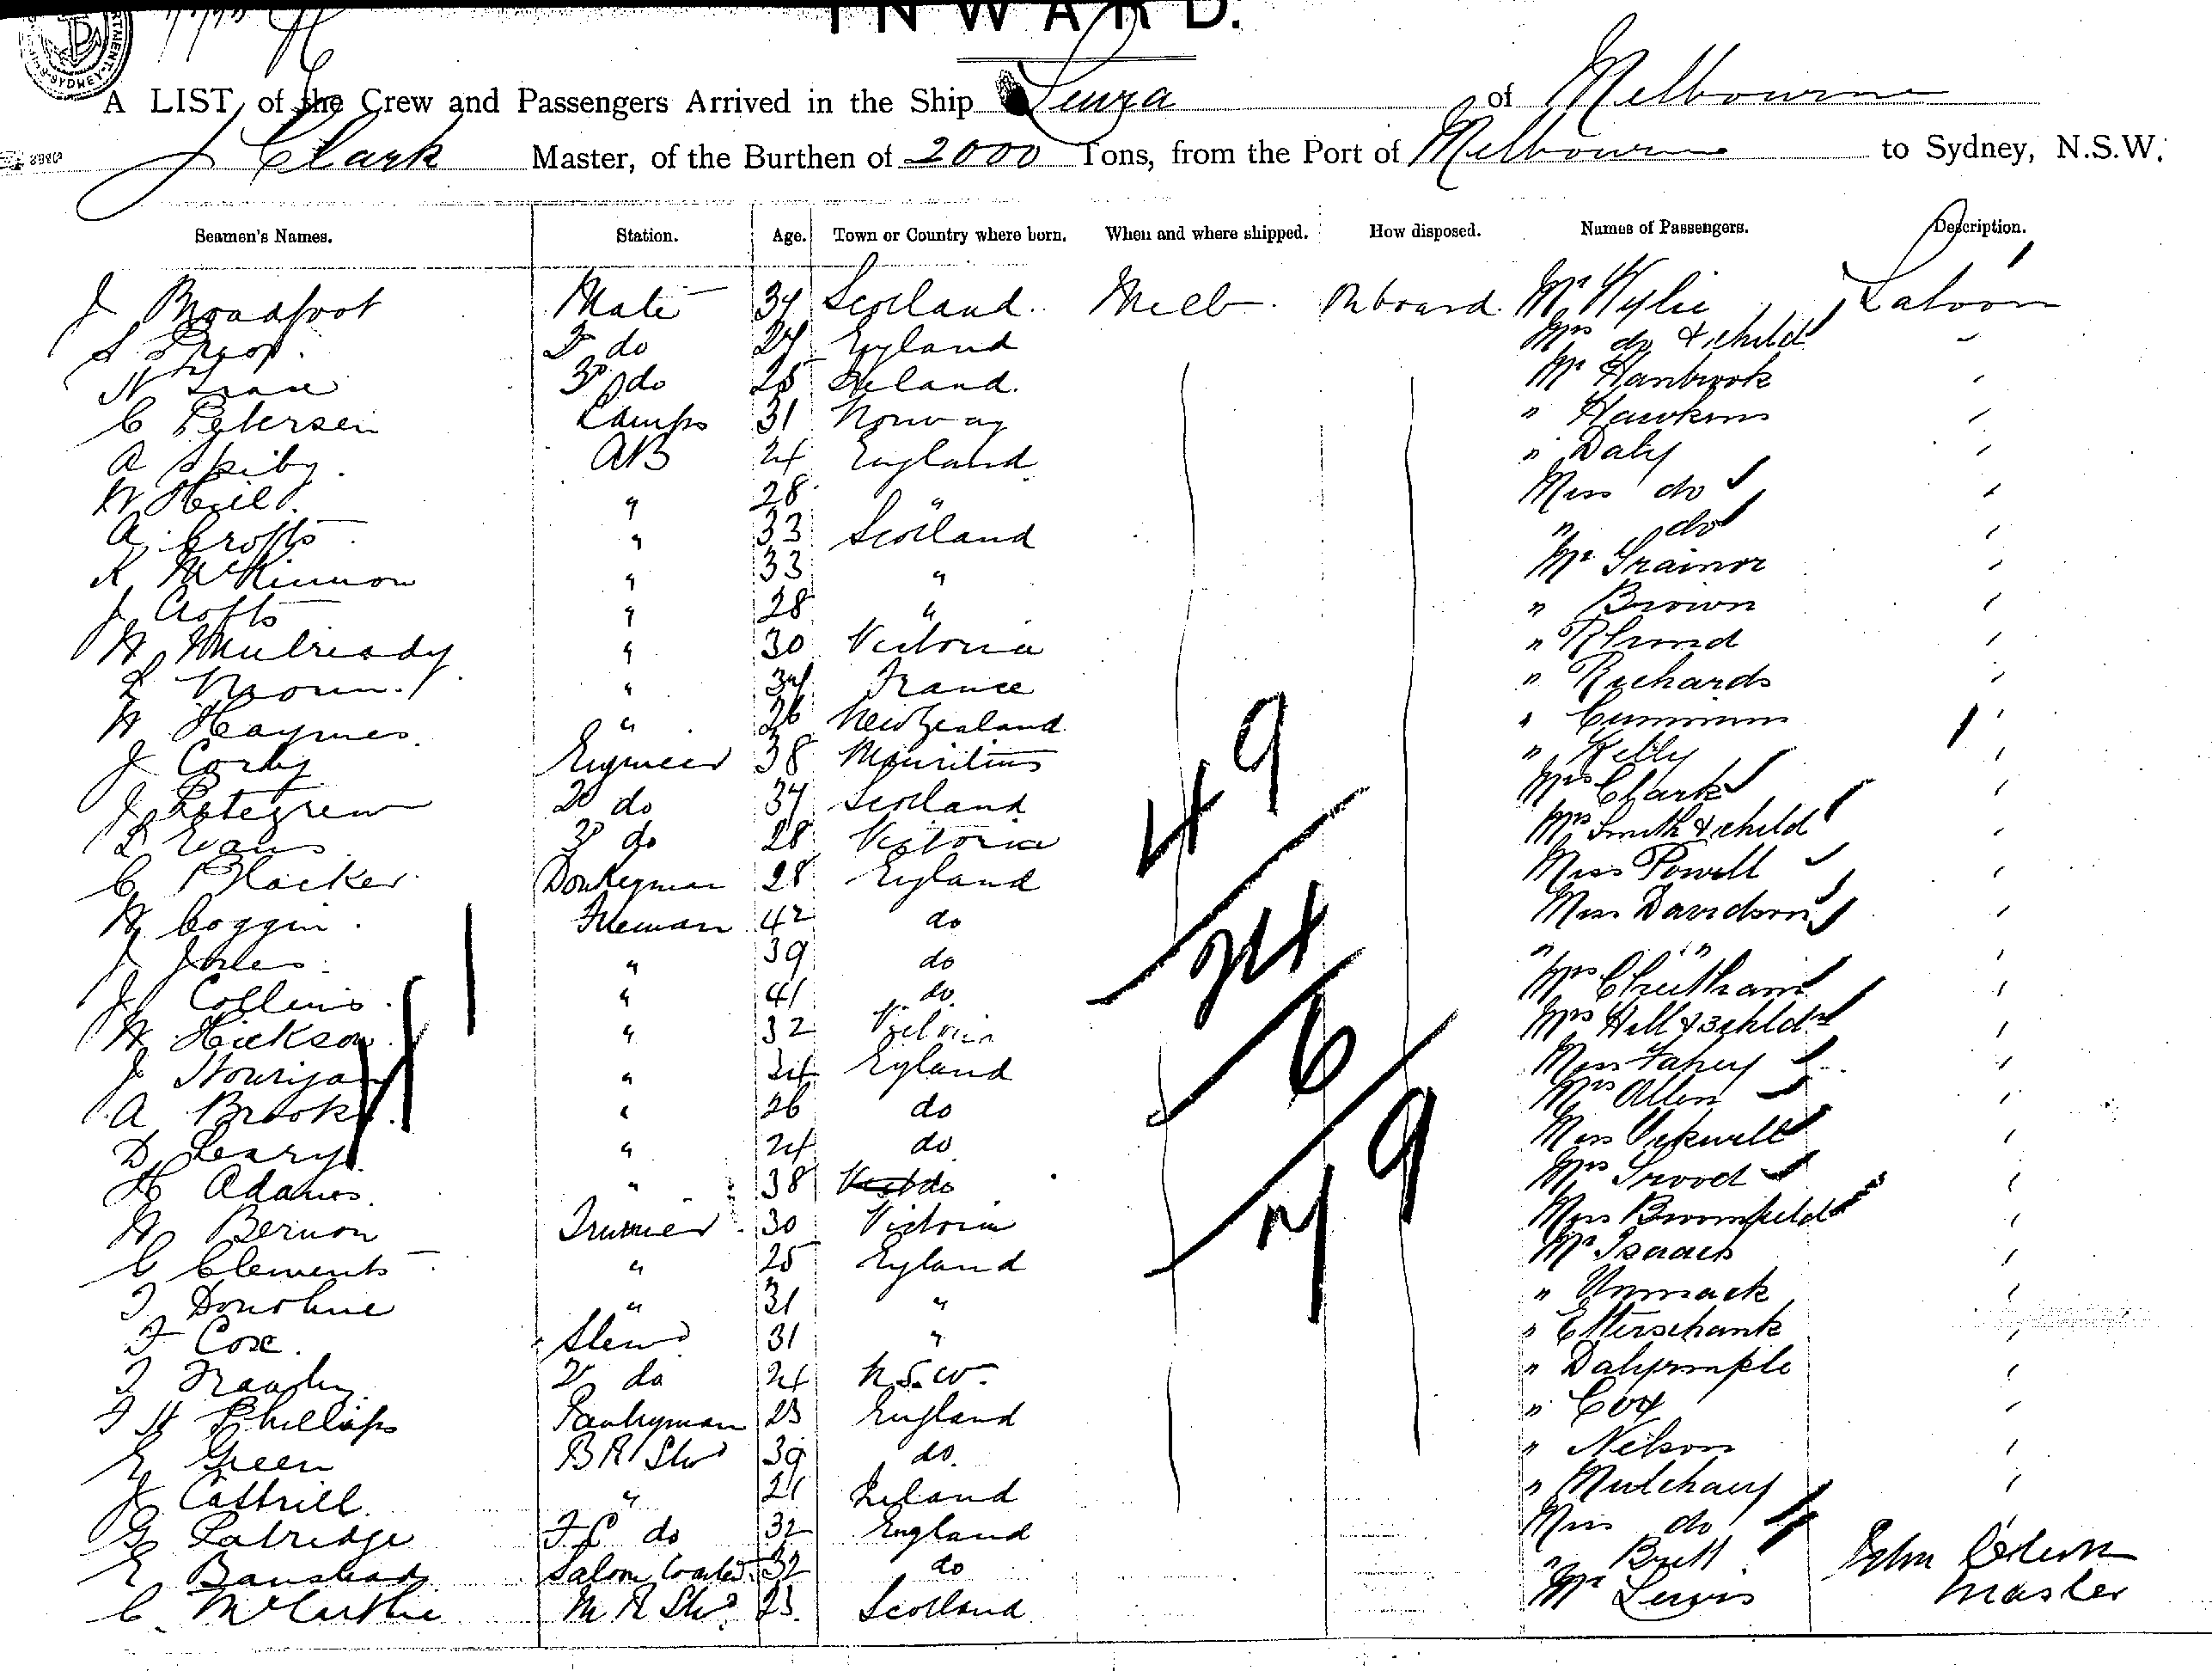 INWARD.
A LIST of the Crew and Passengers Arrived in the Ship of Melbourne
J Clark Master, of the Burthen of 2000 Tons, from the Port of Melbourne to Sydney, N.S.W.
Seamen's Names. Station. Age. Town or Country where born. When and where shipped. How disposed. Names of Passengers. Description.
J Broadfoot Mate 34 Scotland. Melb. Onboard. Mr Wylie Saloon
2d do 27 England Mrs do & child "
N 3d do 25 Ireland. Mr Hambrook "
C Petersen Lamps 31 Norway " Hawkins "
A Spiby. AB 24 England " Daly "
W Hill. " 28 " Miss do "
A. Crofts " 33 Scotland " do "
K McKinnon " 33 " Mr Grainor "
J Crofts " 28 " " Brown "
W Mulready " 30 Victoria " "
L " 34 France " Richards "
W Haymes. " 26 New Zealand " Cummins "
J Corby Engineer 38 Mauritius " Kelly "
J Petegrew 2d do 34 Scotland Mrs Clark "
L Evans 3d do 28 Victoria Mrs Smith & child "
C Blacker Donkeyman 28 England Miss Powell "
W Coggin. Fireman 42 do Miss Davidson "
J Jones " 39 do " " "
J Collins. " 41 do. Mrs Cheetham "
W Hickson. " 32 Victoria Mrs Hill & 3 childn "
J Hourigan " 34 England Miss Fahey "
A Brooks. " 26 do Mrs Allen "
D Leary " 24 do Miss "
H Adams. " 38 do Mrs "
W Bernon Trimmer 30 Victoria Miss Broomfield "
C Clements " 25 England Mr Isaacs "
T Donohue " 31 " " Unmack "
F Cox. Stewd 31 " " Etterschank "
T 2d do 24 N.S.W. " Dalyrmple "
F W Phillips Pantryman 23 England " Cox "
E Green BR Stwd 39 do. " Nelson "
J Cattrill. " 21 Ireland " Mulchay "
G Patridge F.C do 32 England Miss do
E Banstead Saloon 32 do " Brett John Clark
C McCarthie M R Stwd. 23. Scotland Mr Lewis Master
49
24
6
79